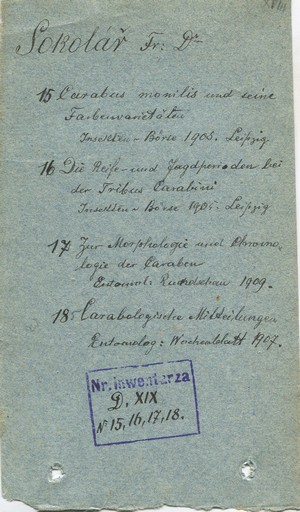 XVIII
Sokolář Fr: Dr
15 Carabus monilis und seine
Farbenvarietäten
Insekten - Börse 1905. Leipzig
16 Die Reife- und Jagdperioden bei
der Tribus Carabini
Insekten - Börse 1905. Leipzig
17 Zur Morphologie und Chromo-
logie der Caraben
Entomol: Rundschau 1909.
18 Carabologische Mitteilungen
Entomolog: Wochenblatt 1907.
Nr. inwentarza
D. XIX
N 15, 16, 17, 18.